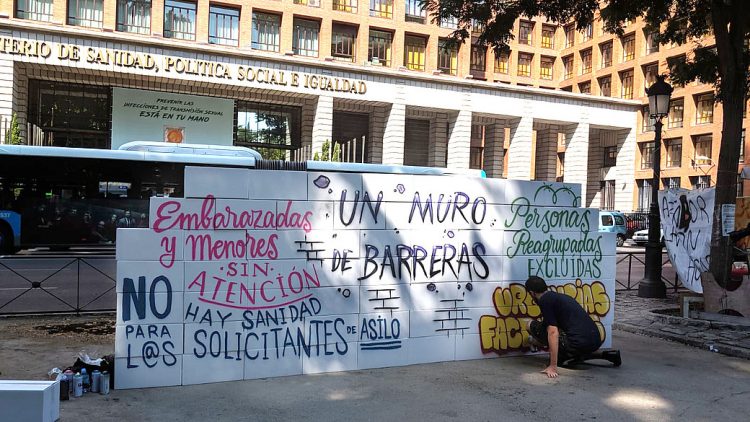 TERIO DE SANIDAD, POLITICA SOCIAL E IGUALDAD
PREVENIR LAS
INFECCIONES DE TRANSMISIÓN SEXUAL
ESTÁ EN TU MANO
Embarazadas
y Menores
SIN
ATENCIÓN
UN MURO
DE BARRERAS
Personas
Reagrupadas
EXCLUIDAS
NO
PARA
L@S
HAY SANIDAD
SOLICITANTES DE ASILO
URGENCIAS